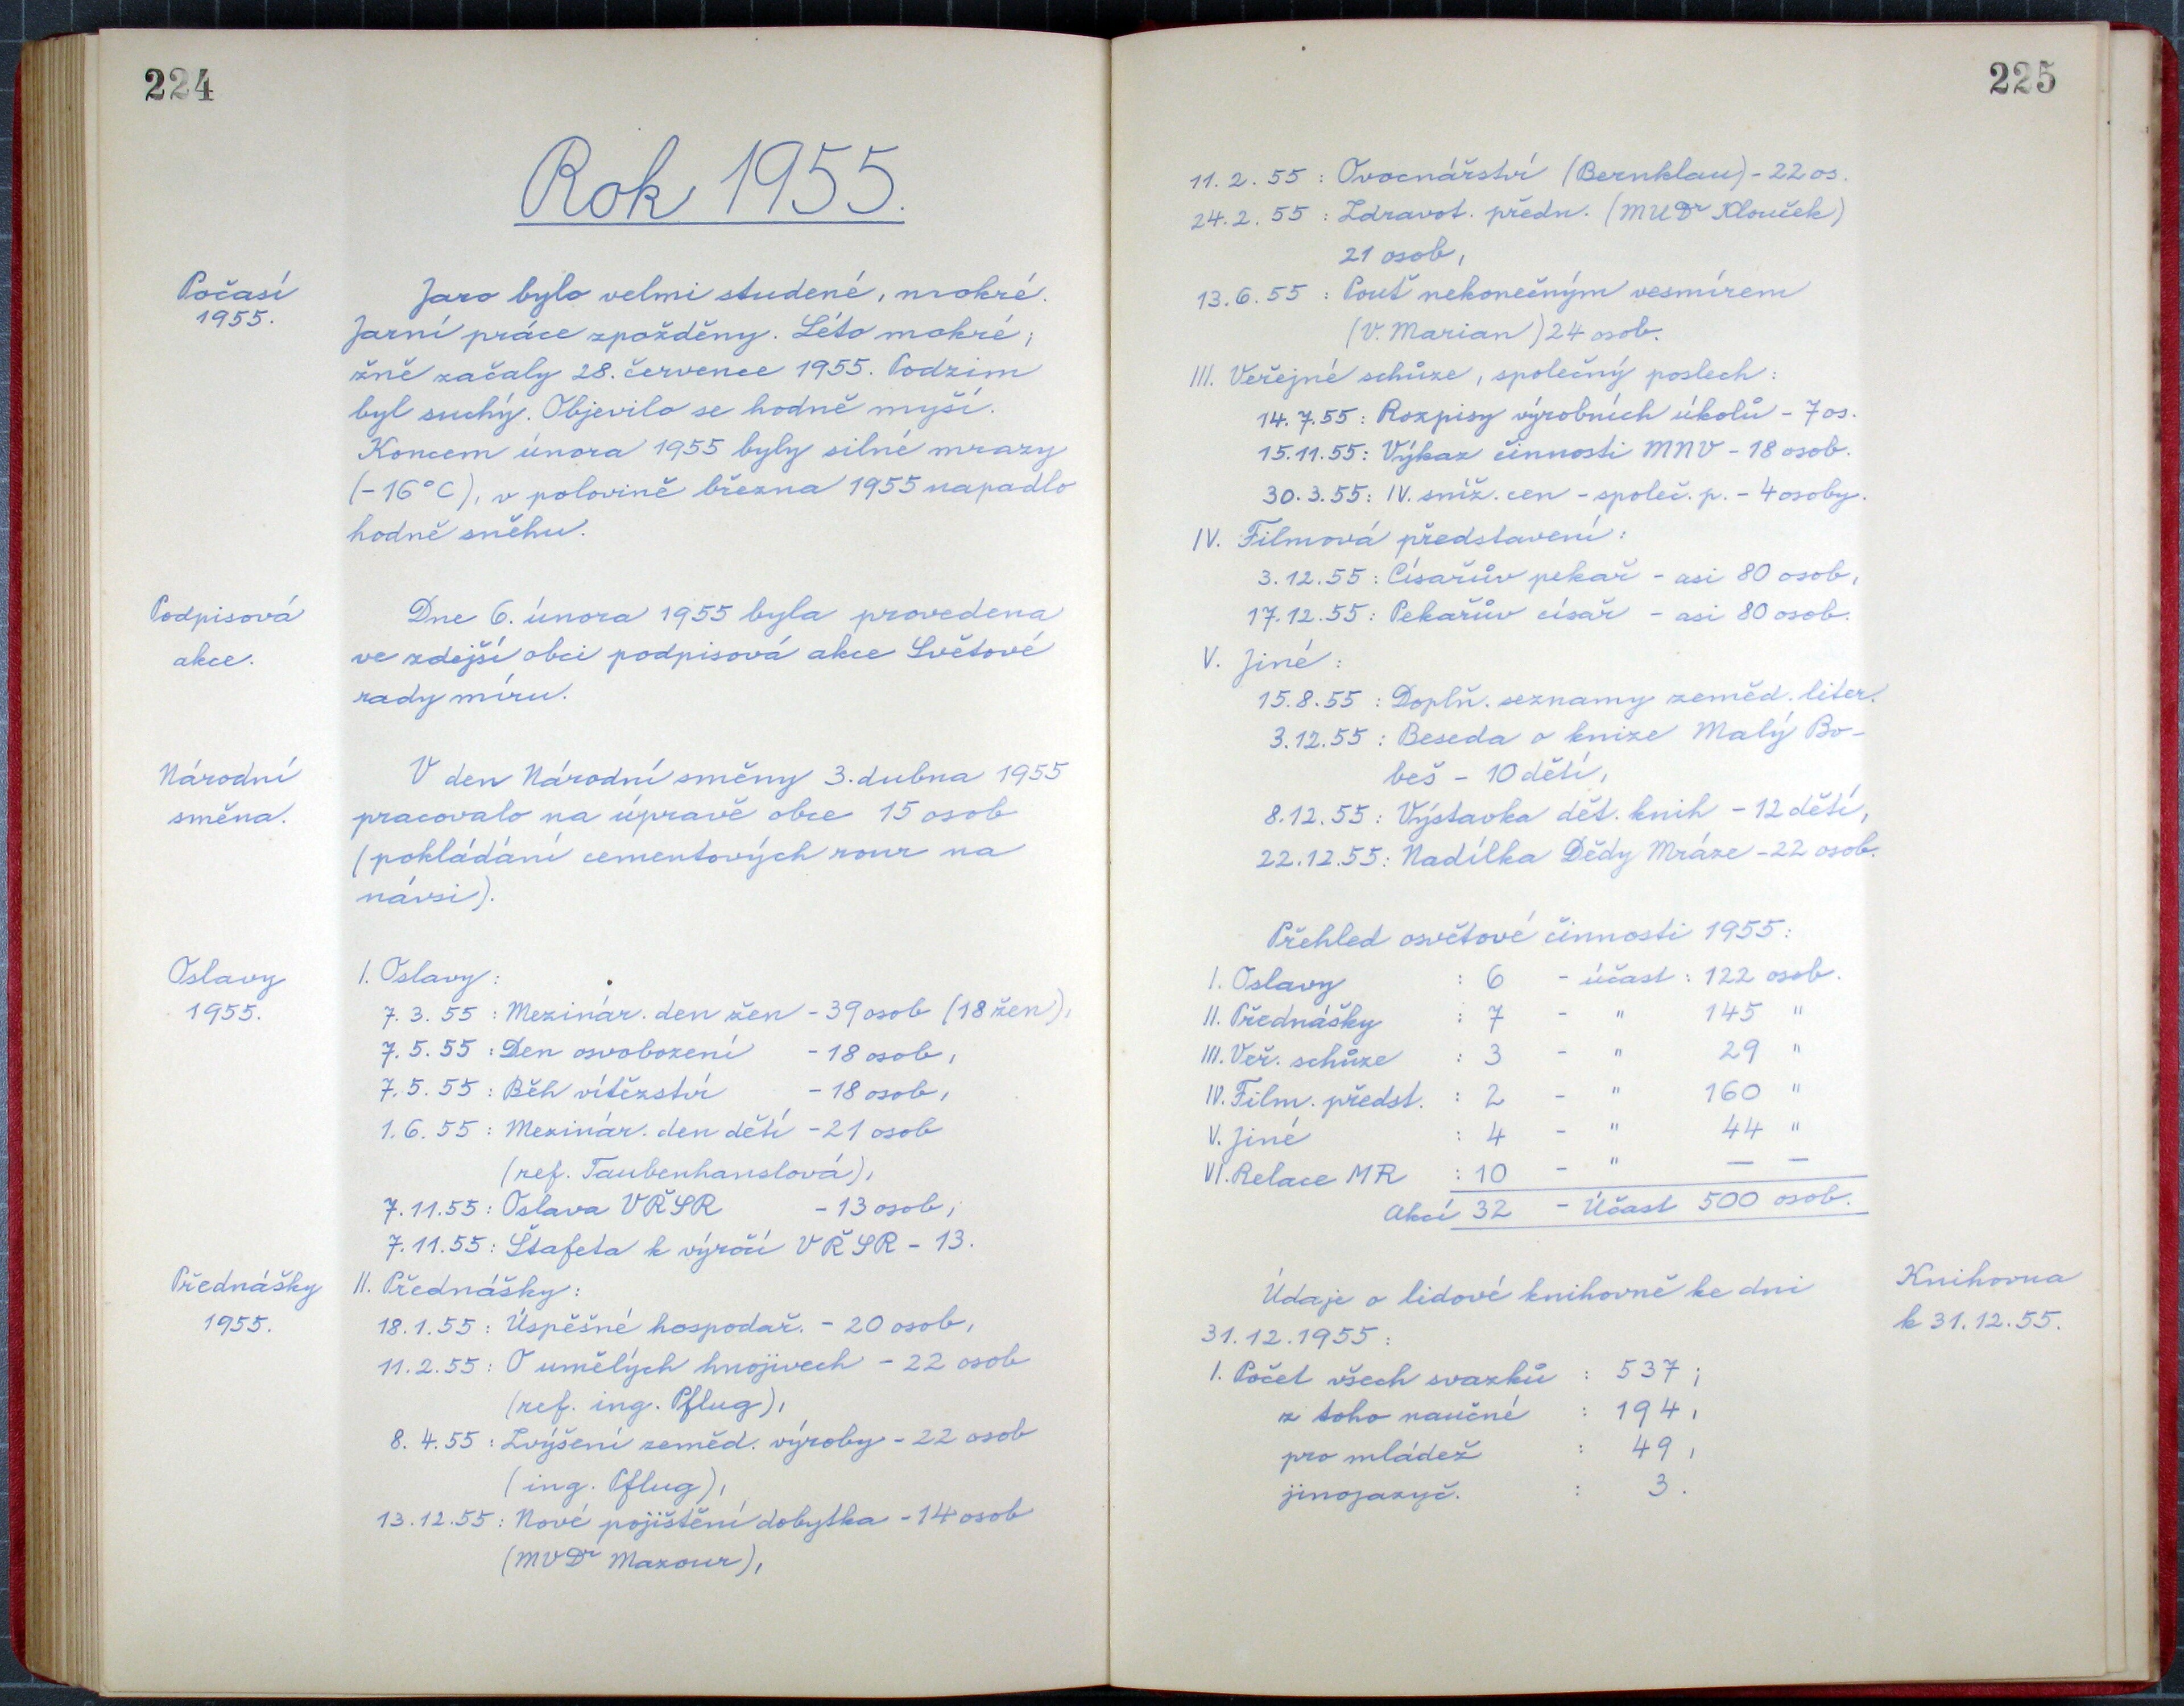 224
Rok 1955.
Počasí
1955.
Jaro bylo velmi studené, mokré.
Jarní práce zpožděny. Léto mokré;
žně začaly 28. července 1955. Podzim
byl suchý. Objevilo se hodně myší.
Koncem února 1955 byly silné mrazy
(-16°C), v polovině března 1955 napadlo
hodně sněhu.
Podpisová
akce.
Dne 6. února 1955 byla provedena
ve zdejší obci podpisová akce Světové
rady míru.
Národní
směna.
V den Národní směny 3. dubna 1955
pracovalo na úpravě obce 15 osob
(pokládání cementových rour na
návsi).
Oslavy
1955.
I. Oslavy:
7. 3. 55 : Mezinár. den žen - 39 osob (18 žen),
7. 5. 55 : Den osvobození - 18 osob,
7. 5. 55 : Běh vítězství - 18 osob,
1. 6. 55 : Mezinár. den dětí - 21 osob
(ref. Taubenhanslová),
7. 11. 55 : Oslava VŘSR - 13 osob,
7. 11. 55 : Štafeta k výročí VŘSR - 13.
Přednášky
1955.
II. Přednášky:
18. 1. 55 : Úspěšné hospodař. - 20 osob,
11. 2. 55 : O umělých hnojivech - 22 osob
(ref. ing. Pflug),
8. 4. 55 : Zvýšení zeměd. výroby - 22 osob
(ing. Pflug),
13. 12. 55 : Nové pojištění dobytka - 14 osob
(MVDr Mazour),
225
11. 2. 55 : Ovocnářství (Bernklau) - 22 os.
24. 2. 55 : Zdravot. předn. (MUDr Klouček)
21 osob,
13. 6. 55 : Pouť nekonečným vesmírem
(V. Marian) 24 osob.
III. Veřejné schůze, společný poslech:
14. 7. 55 : Rozpisy výrobních úkolů - 7 os.
15. 11. 55 : Výkaz činnosti MNV - 18 osob.
30. 3. 55 : IV. sníž. cen - společ. p. - 4 osoby.
IV. Filmová představení:
3. 12. 55 : Císařův pekař - asi 80 osob,
17. 12. 55 : Pekařův císař - asi 80 osob.
V. Jiné:
15. 8. 55 : Doplň. seznamy zeměd. liter.
3. 12. 55 : Beseda o knize Malý Bo-
beš - 10 dětí,
8. 12. 55 : Výstavka dět. knih - 12 dětí,
22. 12. 55 : Nadílka Dědy Mráze - 22 osob.
Přehled osvětové činnosti 1955:
I. Oslavy : 6 - účast : 122 osob.
II. Přednášky : 7 - " 145 "
III. Veř. schůze : 3 - " 29 "
IV. Film. předst. : 2 - " 160 "
V. Jiné : 4 - " 44 "
VI. Relace MR : 10 - " — —
Akcí 32 - Účast 500 osob.
Knihovna
k 31. 12. 55.
Údaje o lidové knihovně ke dni
31. 12. 1955 :
I. Počet všech svazků : 537 ;
z toho naučné : 194 ,
pro mládež : 49 ,
jinojazyč. : 3 .